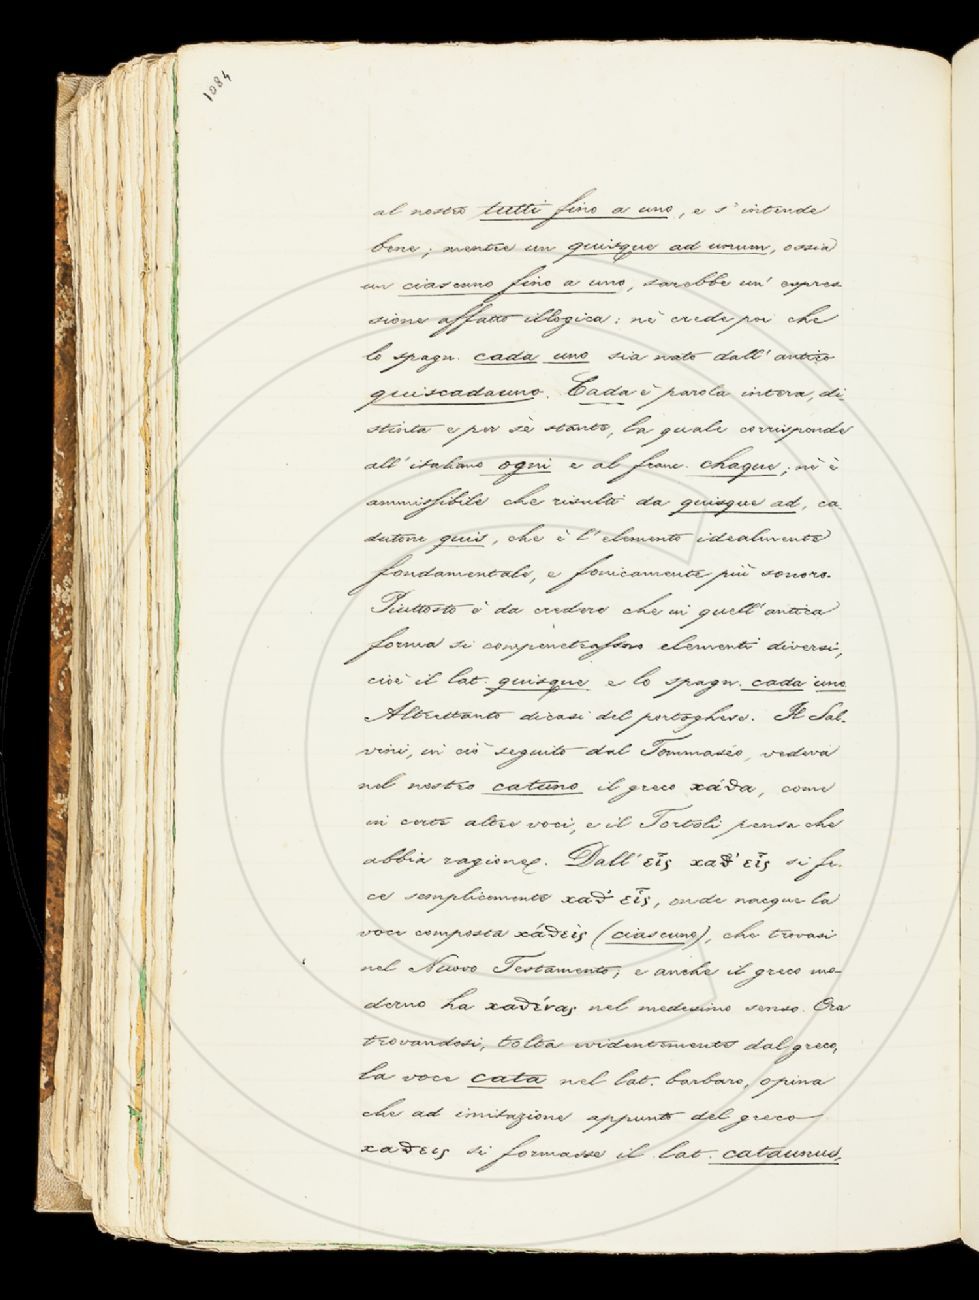 1084
al nostro tutti fino a uno, e s'intende
bene; mentre un quisque ad unum, ossia
un ciascuno fino a uno, sarebbe un' espres-
sione affatto illogica: nè crede poi che
lo spagn. cada uno sia nato dall' antico
quiscadauno. Cada è parola intera, di-
stinta e per sè stante, la quale corrisponde
all' italiano ogni e al franc. chaque; nè è
ammissibile che risulti da quisque ad, ca-
dutone quis, che è l'elemento idealmente
fondamentale, e fonicamente più sonoro.
Piuttosto è da credere che in quell' antica
forma si compenetrassero elementi diversi,
cioè il lat. quisque e lo spagn. cada uno
Altrettanto dicasi del portoghese. Il Sal-
vini, in ciò seguito dal Tommaséo, vedeva
nel nostro catuno il greco χάϑα, come
in certe altre voci, e il Tortoli pensa che
abbia ragione. Dall' εἷς χαϑ' εἷς si fe-
ce semplicemente χαϑ' εἷς, onde nacque la
voce composta χάϑεις (ciascuno), che trovasi
nel Nuovo Testamento; e anche il greco mo-
derno ha χαϑένας nel medesimo senso. Ora
trovandosi, tolta evidentemente dal greco,
la voce cata nel lat. barbaro, opina
che ad imitazione appunto del greco
χαϑεις si formasse il lat. cataunus,